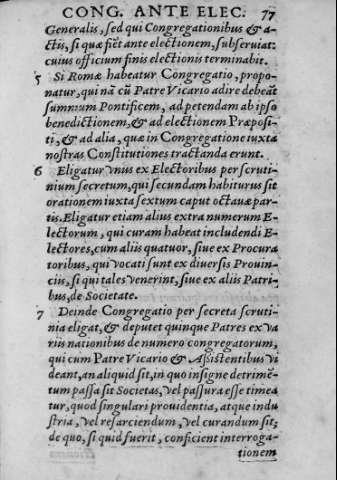 CONG. ANTE ELEC. 77
Generalis, sed qui Congregationibus & a-
ctis, si quæ fiẽt ante electionem, subseruiat:
cuius officium finis electionis terminabit.
5 Si Romæ habeatur Congregatio, propo-
natur, qui nã cũ Patre Vicario adire debeãt
summum Pontificem, ad petendam ab ipso
benedictionem, & ad electionem Præposi-
ti, & ad alia, quæ in Congregatione iuxta
nostras Constitutiones tractanda erunt.
6 Eligatur vnus ex Electoribus per scruti-
nium secretum, qui secundam habiturus sit
orationem iuxta sextum caput octauæ par-
tis. Eligatur etiam alius extra numerum E-
lectorum, qui curam habeat includendi E-
lectores, cum aliis quatuor, siue ex Procura
toribus, qui vocati sunt ex diuersis Prouin-
ciis, si qui tales venerint, siue ex aliis Patri-
bus, de Societate.
7 Deinde Congregatio per secreta scruti-
nia eligat, & deputet quinque Patres ex va
riis nationibus de numero congregatorum,
qui cum Patre Vicario & Assistentibus vi
deant, an aliquid sit, in quo insigne detrimẽ-
tum passa sit Societas, vel passura esse timea
tur, quod singulari prouidentia, atque indu
stria, vel resarciendum, vel curandum sit;
de quo, si quid fuerit, conficient interroga-
tionem